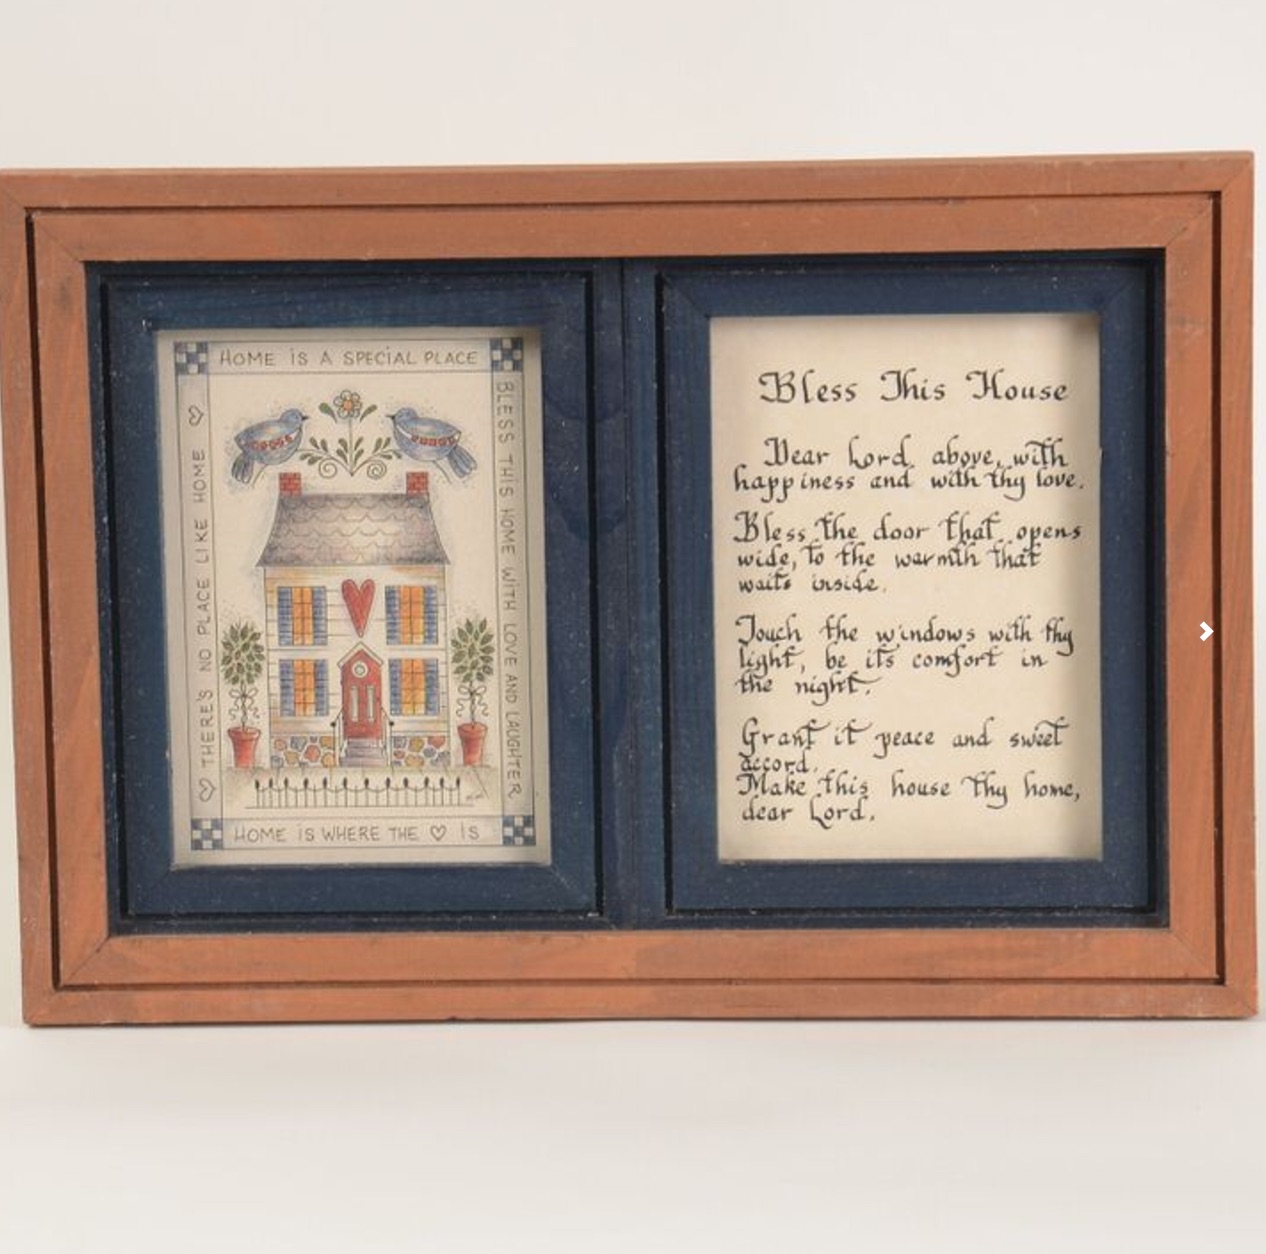 HOME IS A SPECIAL PLACE
BLESS THIS HOME WITH LOVE AND LAUGHTER
HOME IS WHERE THE ♡ IS
♡ THERE'S NO PLACE LIKE HOME ♡
Bless This House
Dear Lord above, with
happiness and with thy love.
Bless the door that opens
wide, to the warmth that
waits inside.
Touch the windows with thy
light, be its comfort in
the night.
Grant it peace and sweet
accord.
Make this house thy home,
dear Lord.